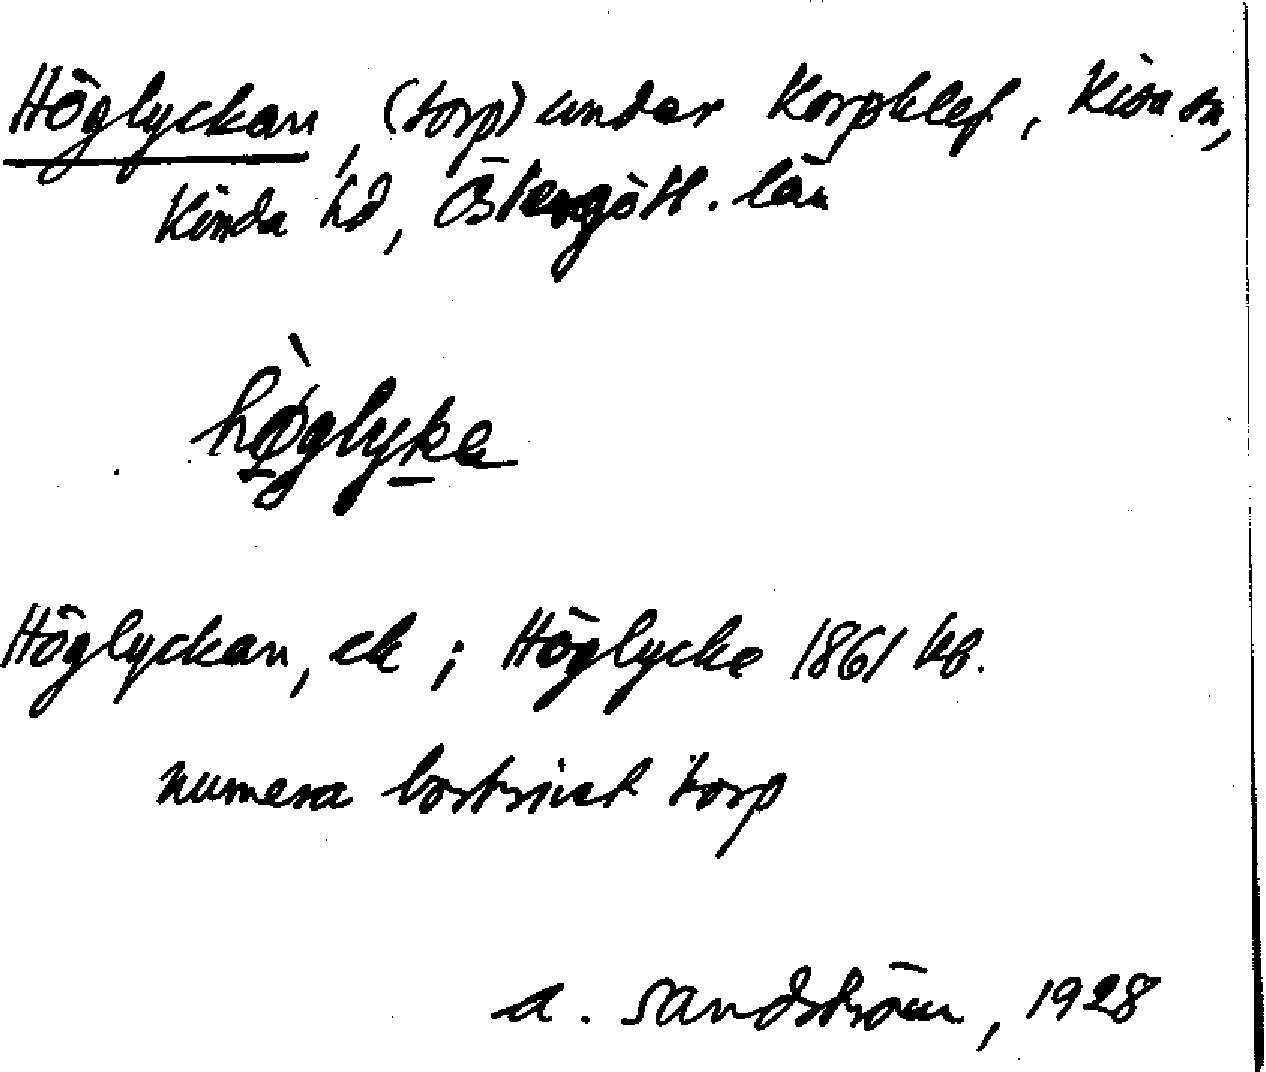 Höglyckan, (torp) under Korpklef, Kisa sn,
Kinda hd, Östergötl. län
hø̀glyka
Höglyckan, ek ; Höglycke 1861 kb.
numera bortrivet torp
A. Sandström, 1928